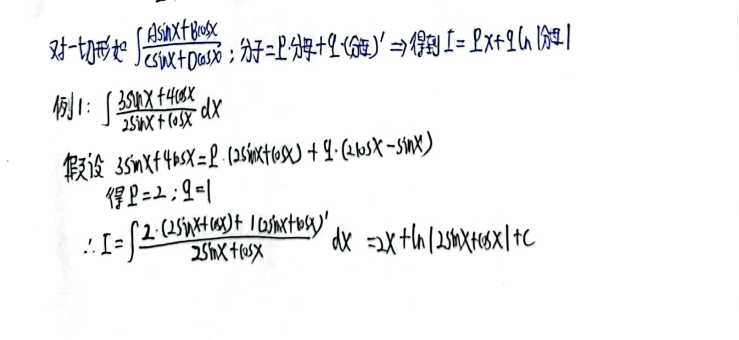 对一切形如 ∫(Asinx+Bcosx)/(Csinx+Dcosx) ; 分子=P·分母+q·(分母)' ⇒ 得到 I = Px+q ln|分母|
例1: ∫(3sinx+4cosx)/(2sinx+cosx) dx
假设 3sinx+4cosx=P·(2sinx+cosx)+q·(2cosx-sinx)
得P=2 ; q=1
∴ I=∫(2·(2sinx+cosx)+1(2sinx+cosx)')/(2sinx+cosx) dx =2x+ln|2sinx+cosx|+c